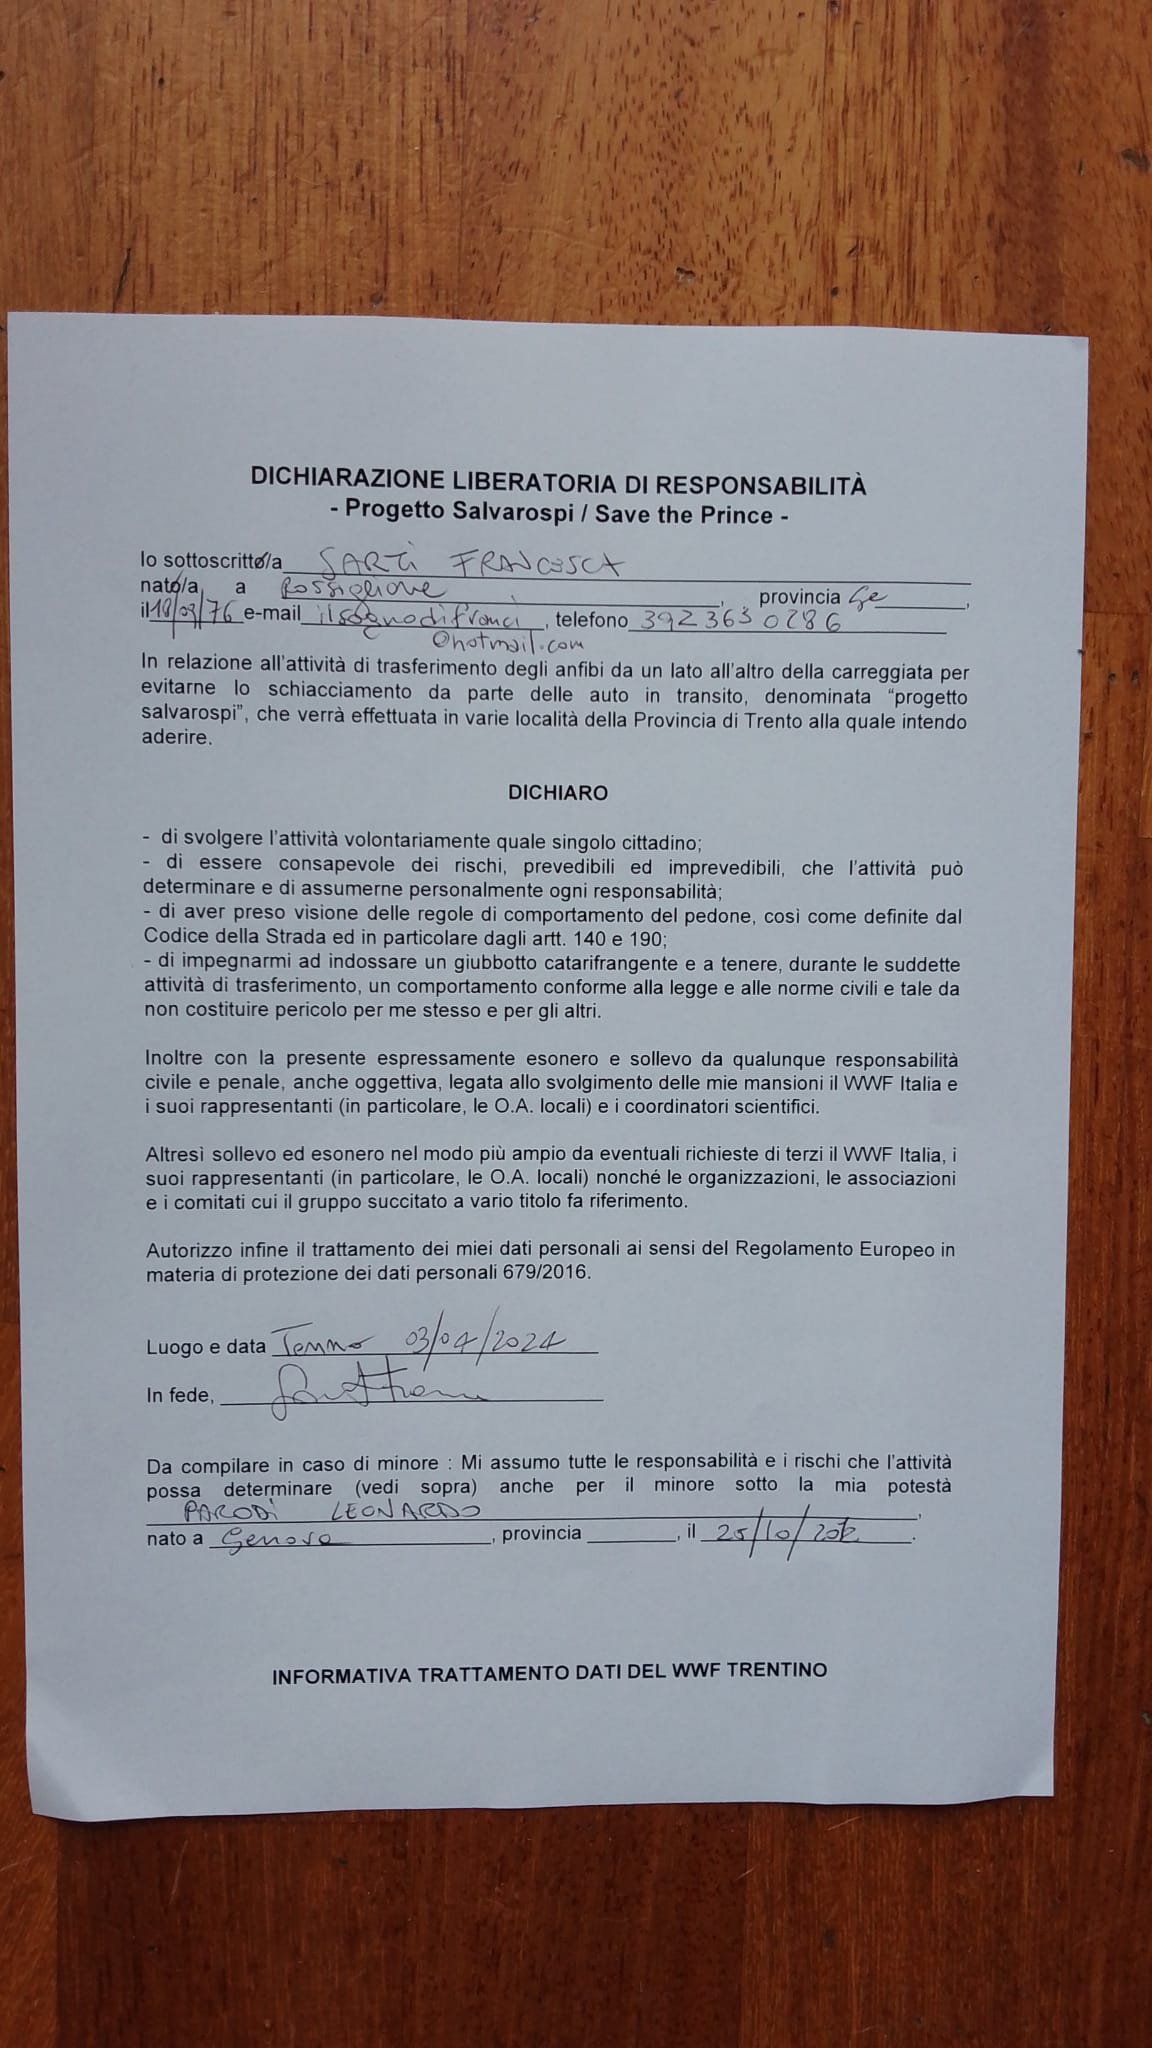 DICHIARAZIONE LIBERATORIA DI RESPONSABILITÀ
- Progetto Salvarospi / Save the Prince -
Io sottoscritto/a SARTI FRANCESCA
nato/a a Rossiglione, provincia Ge,
il 18/09/76 e-mail ilsognodifranci, telefono 3923630286
@hotmail.com
In relazione all'attività di trasferimento degli anfibi da un lato all'altro della carreggiata per
evitarne lo schiacciamento da parte delle auto in transito, denominata "progetto
salvarospi", che verrà effettuata in varie località della Provincia di Trento alla quale intendo
aderire.
DICHIARO
- di svolgere l'attività volontariamente quale singolo cittadino;
- di essere consapevole dei rischi, prevedibili ed imprevedibili, che l'attività può
determinare e di assumerne personalmente ogni responsabilità;
- di aver preso visione delle regole di comportamento del pedone, così come definite dal
Codice della Strada ed in particolare dagli artt. 140 e 190;
- di impegnarmi ad indossare un giubbotto catarifrangente e a tenere, durante le suddette
attività di trasferimento, un comportamento conforme alla legge e alle norme civili e tale da
non costituire pericolo per me stesso e per gli altri.
Inoltre con la presente espressamente esonero e sollevo da qualunque responsabilità
civile e penale, anche oggettiva, legata allo svolgimento delle mie mansioni il WWF Italia e
i suoi rappresentanti (in particolare, le O.A. locali) e i coordinatori scientifici.
Altresì sollevo ed esonero nel modo più ampio da eventuali richieste di terzi il WWF Italia, i
suoi rappresentanti (in particolare, le O.A. locali) nonché le organizzazioni, le associazioni
e i comitati cui il gruppo succitato a vario titolo fa riferimento.
Autorizzo infine il trattamento dei miei dati personali ai sensi del Regolamento Europeo in
materia di protezione dei dati personali 679/2016.
Luogo e data Tenno 03/04/2024
In fede,
Da compilare in caso di minore : Mi assumo tutte le responsabilità e i rischi che l'attività
possa determinare (vedi sopra) anche per il minore sotto la mia potestà
PARODI LEONARDO,
nato a Genova, provincia, il 25/10/.
INFORMATIVA TRATTAMENTO DATI DEL WWF TRENTINO